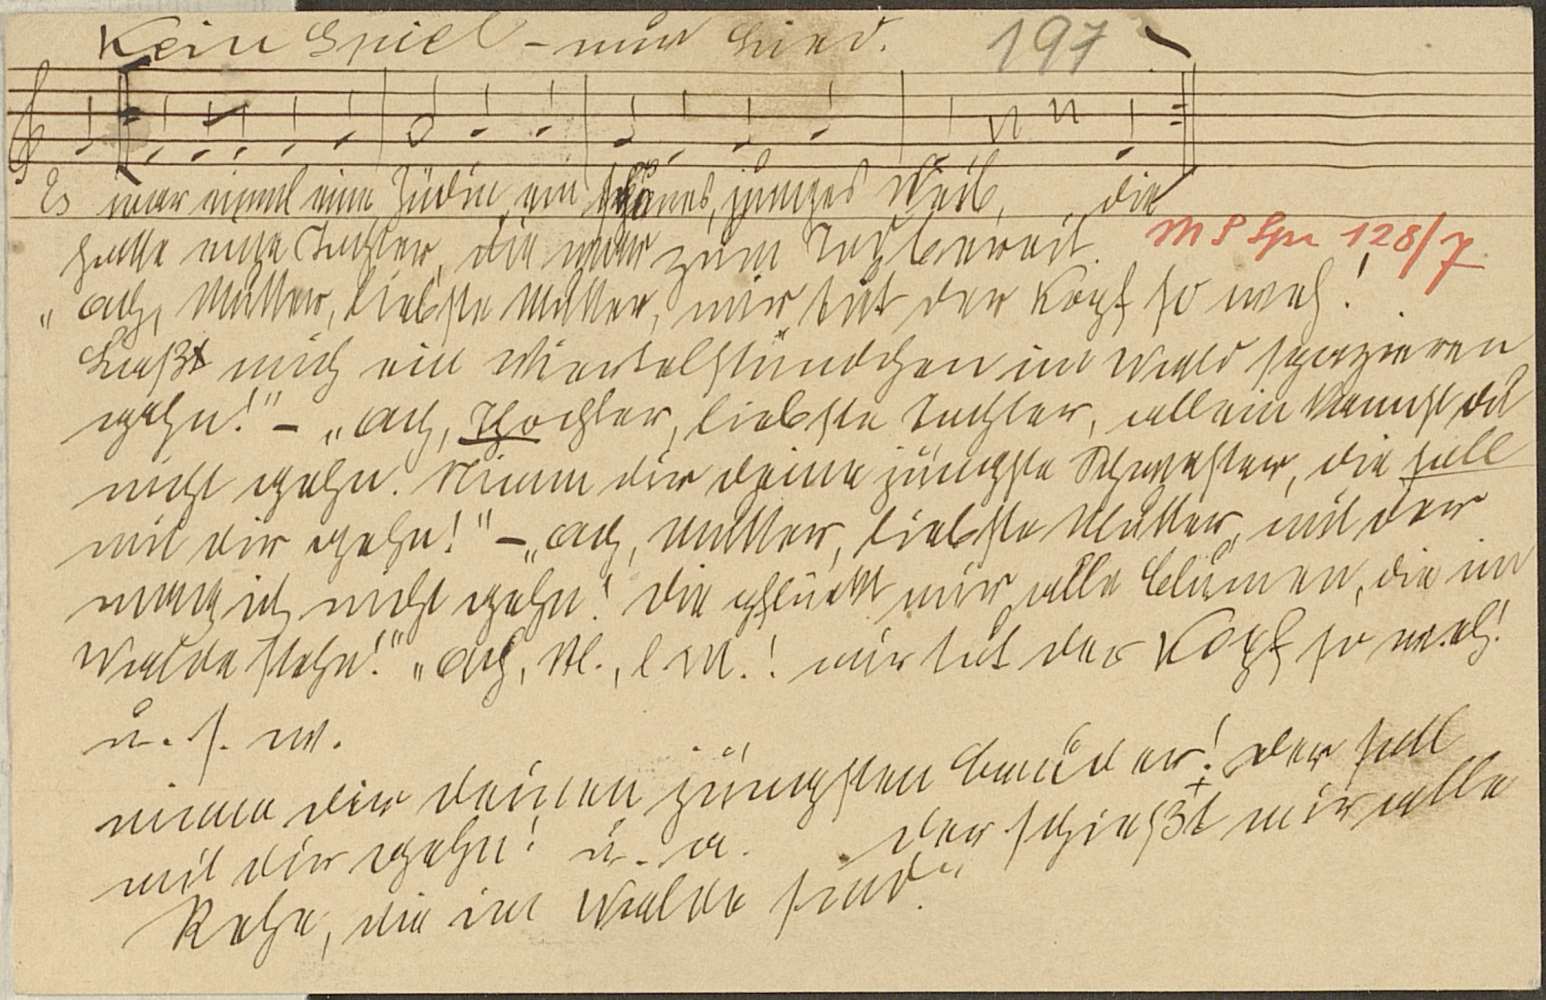 Kein Spiel – nur Lied. 197
Es war einmal eine Jüdin, ein schönes, junges Weib, die
hatte eine Tochter, die war zum Tod bereit. MS Spr 128/7
„Ach, Mutter, liebste Mutter, mir tut der Kopf so weh!
Laßt mich ein Viertelstündchen im Wald spazieren
gehn!" – „Ach, Tochter, liebste Tochter, allein kannst du
nicht gehn. Nimm dir deine jüngste Schwester, die soll
mit dir gehn!" – „Ach, Mutter, liebste Mutter, mit der
mag ich nicht gehn! Die pflückt mir alle Blumen, die im
Walde stehn!" „Ach, M., l. M.! mir tut der Kopf so weh!
u. s. w.
nimm dir deinen jüngsten Bruder! der soll
mit dir gehn! u. a. der schießt mir alle
Rehe, die im Walde sind."